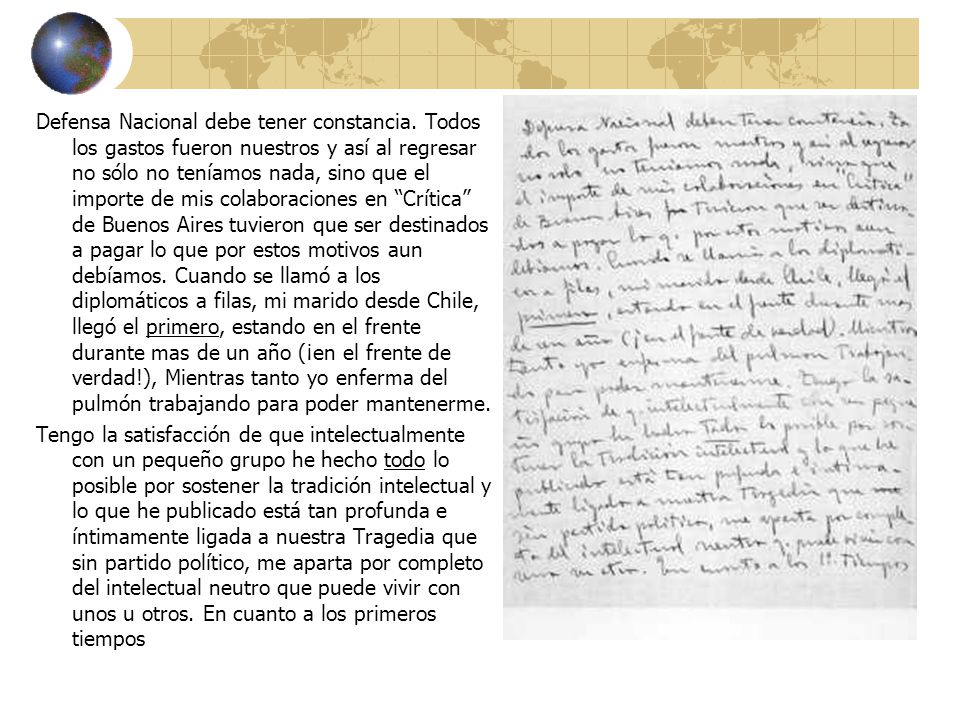 Defensa Nacional debe tener constancia. Todos
los gastos fueron nuestros y así al regresar
no sólo no teníamos nada, sino que el
importe de mis colaboraciones en “Crítica”
de Buenos Aires tuvieron que ser destinados
a pagar lo que por estos motivos aun
debíamos. Cuando se llamó a los
diplomáticos a filas, mi marido desde Chile,
llegó el primero, estando en el frente
durante mas de un año (¡en el frente de
verdad!), Mientras tanto yo enferma del
pulmón trabajando para poder mantenerme.
Tengo la satisfacción de que intelectualmente
con un pequeño grupo he hecho todo lo
posible por sostener la tradición intelectual y
lo que he publicado está tan profunda e
íntimamente ligada a nuestra Tragedia que
sin partido político, me aparta por completo
del intelectual neutro que puede vivir con
unos u otros. En cuanto a los primeros
tiempos
Defensa Nacional deben tener constancia. To
dos los gastos fueron nuestros y asi al regresar
no solo no teniamos nada, sino que
el importe de mis colaboraciones en "Crítica"
de Buenos Aires tuvieron que ser destina-
dos a pagar lo q. por estos motivos aun
debiamos. Cuando se llamó a los diplomati-
cos a filas, mi marido desde Chile, llegó el
primero, estando en el frente durante mas
de un año (¡en el frente de verdad!). Mientras
tanto yo enferma del pulmon trabajan-
do para poder mantenerme. Tengo la sa-
tisfacción de q. intelectualmente con un peque-
ño grupo he hecho todo lo posible por sos-
tener la tradición intelectual y lo que he
publicado está tan profunda e intima-
mente ligado a nuestra Tragedia que
sin partido politico, me aparta por comple-
to del intelectual neutro q. puede vivir con
unos u otros. En cuanto a los Tiempos